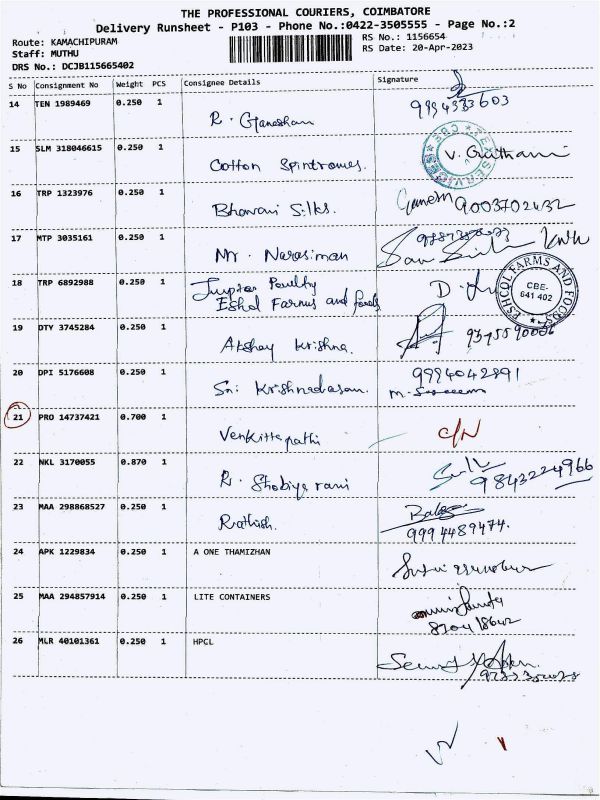 THE PROFESSIONAL COURIERS, COIMBATORE
Delivery Runsheet - P103 - Phone No.:0422-3505555 - Page No.:2
Route: KAMACHIPURAM
RS No.: 1156654
Staff: MUTHU
RS Date: 20-Apr-2023
DRS No.: DCJB115665402
S No Consignment No Weight PCS Consignee Details Signature
14 TEN 1989469 0.250 1 R. Ganeshan 9994333603
15 SLM 318046615 0.250 1 Cotton Spintromes. V.
16 TRP 1323976 0.250 1 Bhavani Silks. Ganesh 9003702432
17 MTP 3035161 0.250 1 Mr. Narasiman
18 TRP 6892988 0.250 1 Jupitar Poultry
Eshol Farms and foods
ESHCOL FARMS AND FOODS
CBE-
641 402
19 DTY 3745284 0.250 1 Akshay Krishna.
20 DPI 5176608 0.250 1 Sri Krishnadasan. 9994042891
21 PRO 14737421 0.700 1 Venkittepathi C/N
22 NKL 3170055 0.870 1 R. Shobiya rani 9843224966
23 MAA 298868527 0.250 1 Rathish. 9994489474.
24 APK 1229834 0.250 1 A ONE THAMIZHAN
25 MAA 294857914 0.250 1 LITE CONTAINERS 870418642
26 MLR 40101361 0.250 1 HPCL